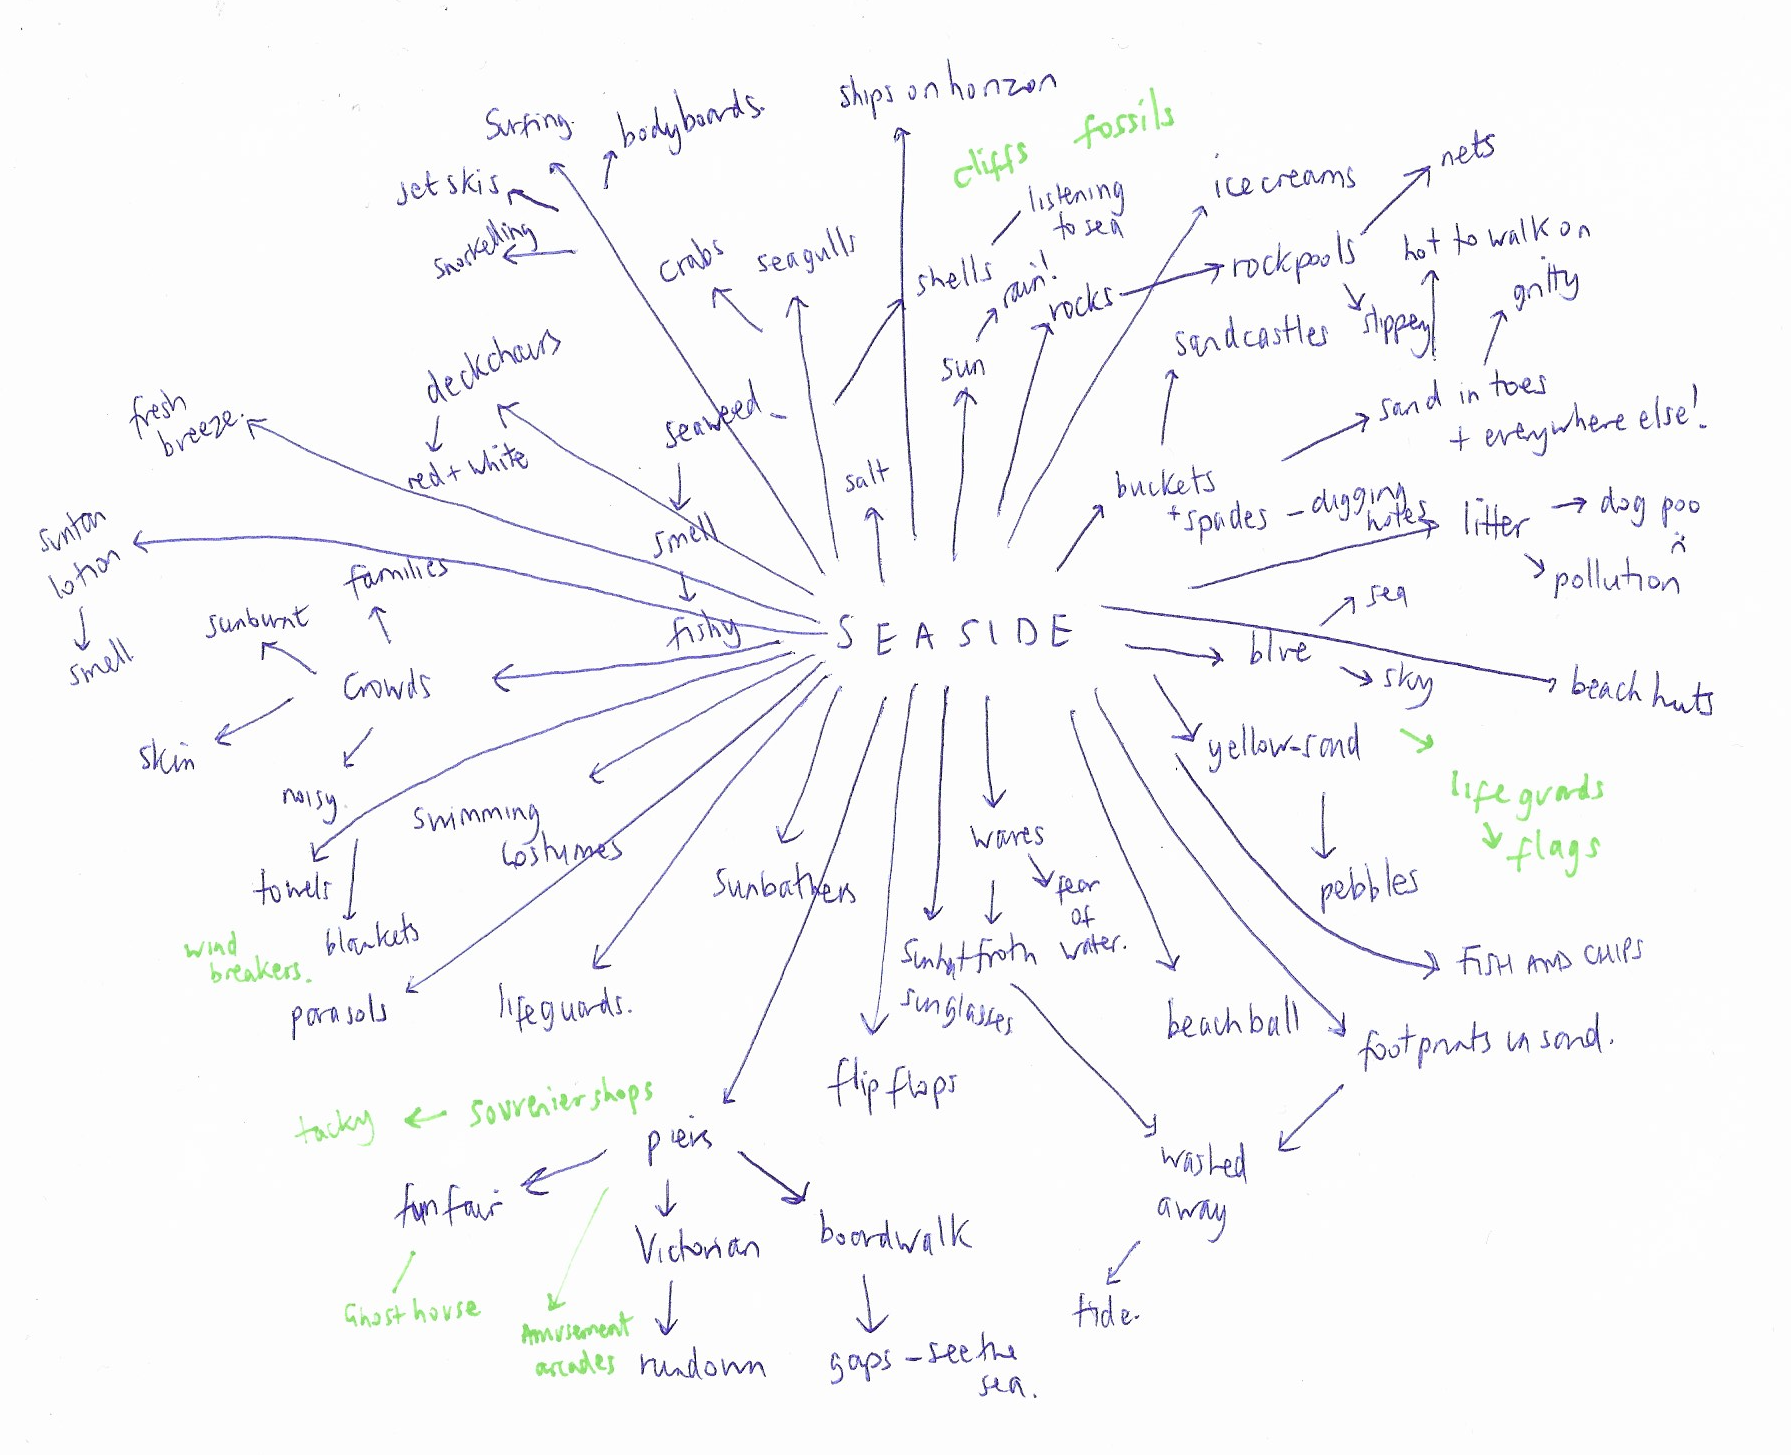 ships on horizon
Surfing.
bodyboards.
cliffs
fossils
jet skis
snorkelling
listening
to sea
ice creams
nets
crabs
seagulls
shells
rain!
rocks
rockpools
hot to walk on
gritty
slippey
sandcastles
sun
deckchairs
red + white
fresh
breeze.
seaweed
sand in toes
+ everywhere else!
salt
buckets
+ spades - digging
holes
litter
dog poo
pollution
suntan
lotion
smell
smell
fishy
families
sunburnt
crowds
skin
noisy.
SEASIDE
blue
sea
sky
beach huts
yellow-sand
life guards
flags
pebbles
swimming
costumes
towels
blankets
wind
breakers.
parasols
lifeguards.
Sunbathers
waves
fear
of
water.
Sunhat
froth
sunglasses
beachball
FISH AND CHIPS
footprints in sand.
flip flops
washed
away
tide.
tacky
souvenier shops
piers
fun fair
Victorian
boardwalk
Ghost house
Amusement
arcades
rundown
gaps - see the
sea.